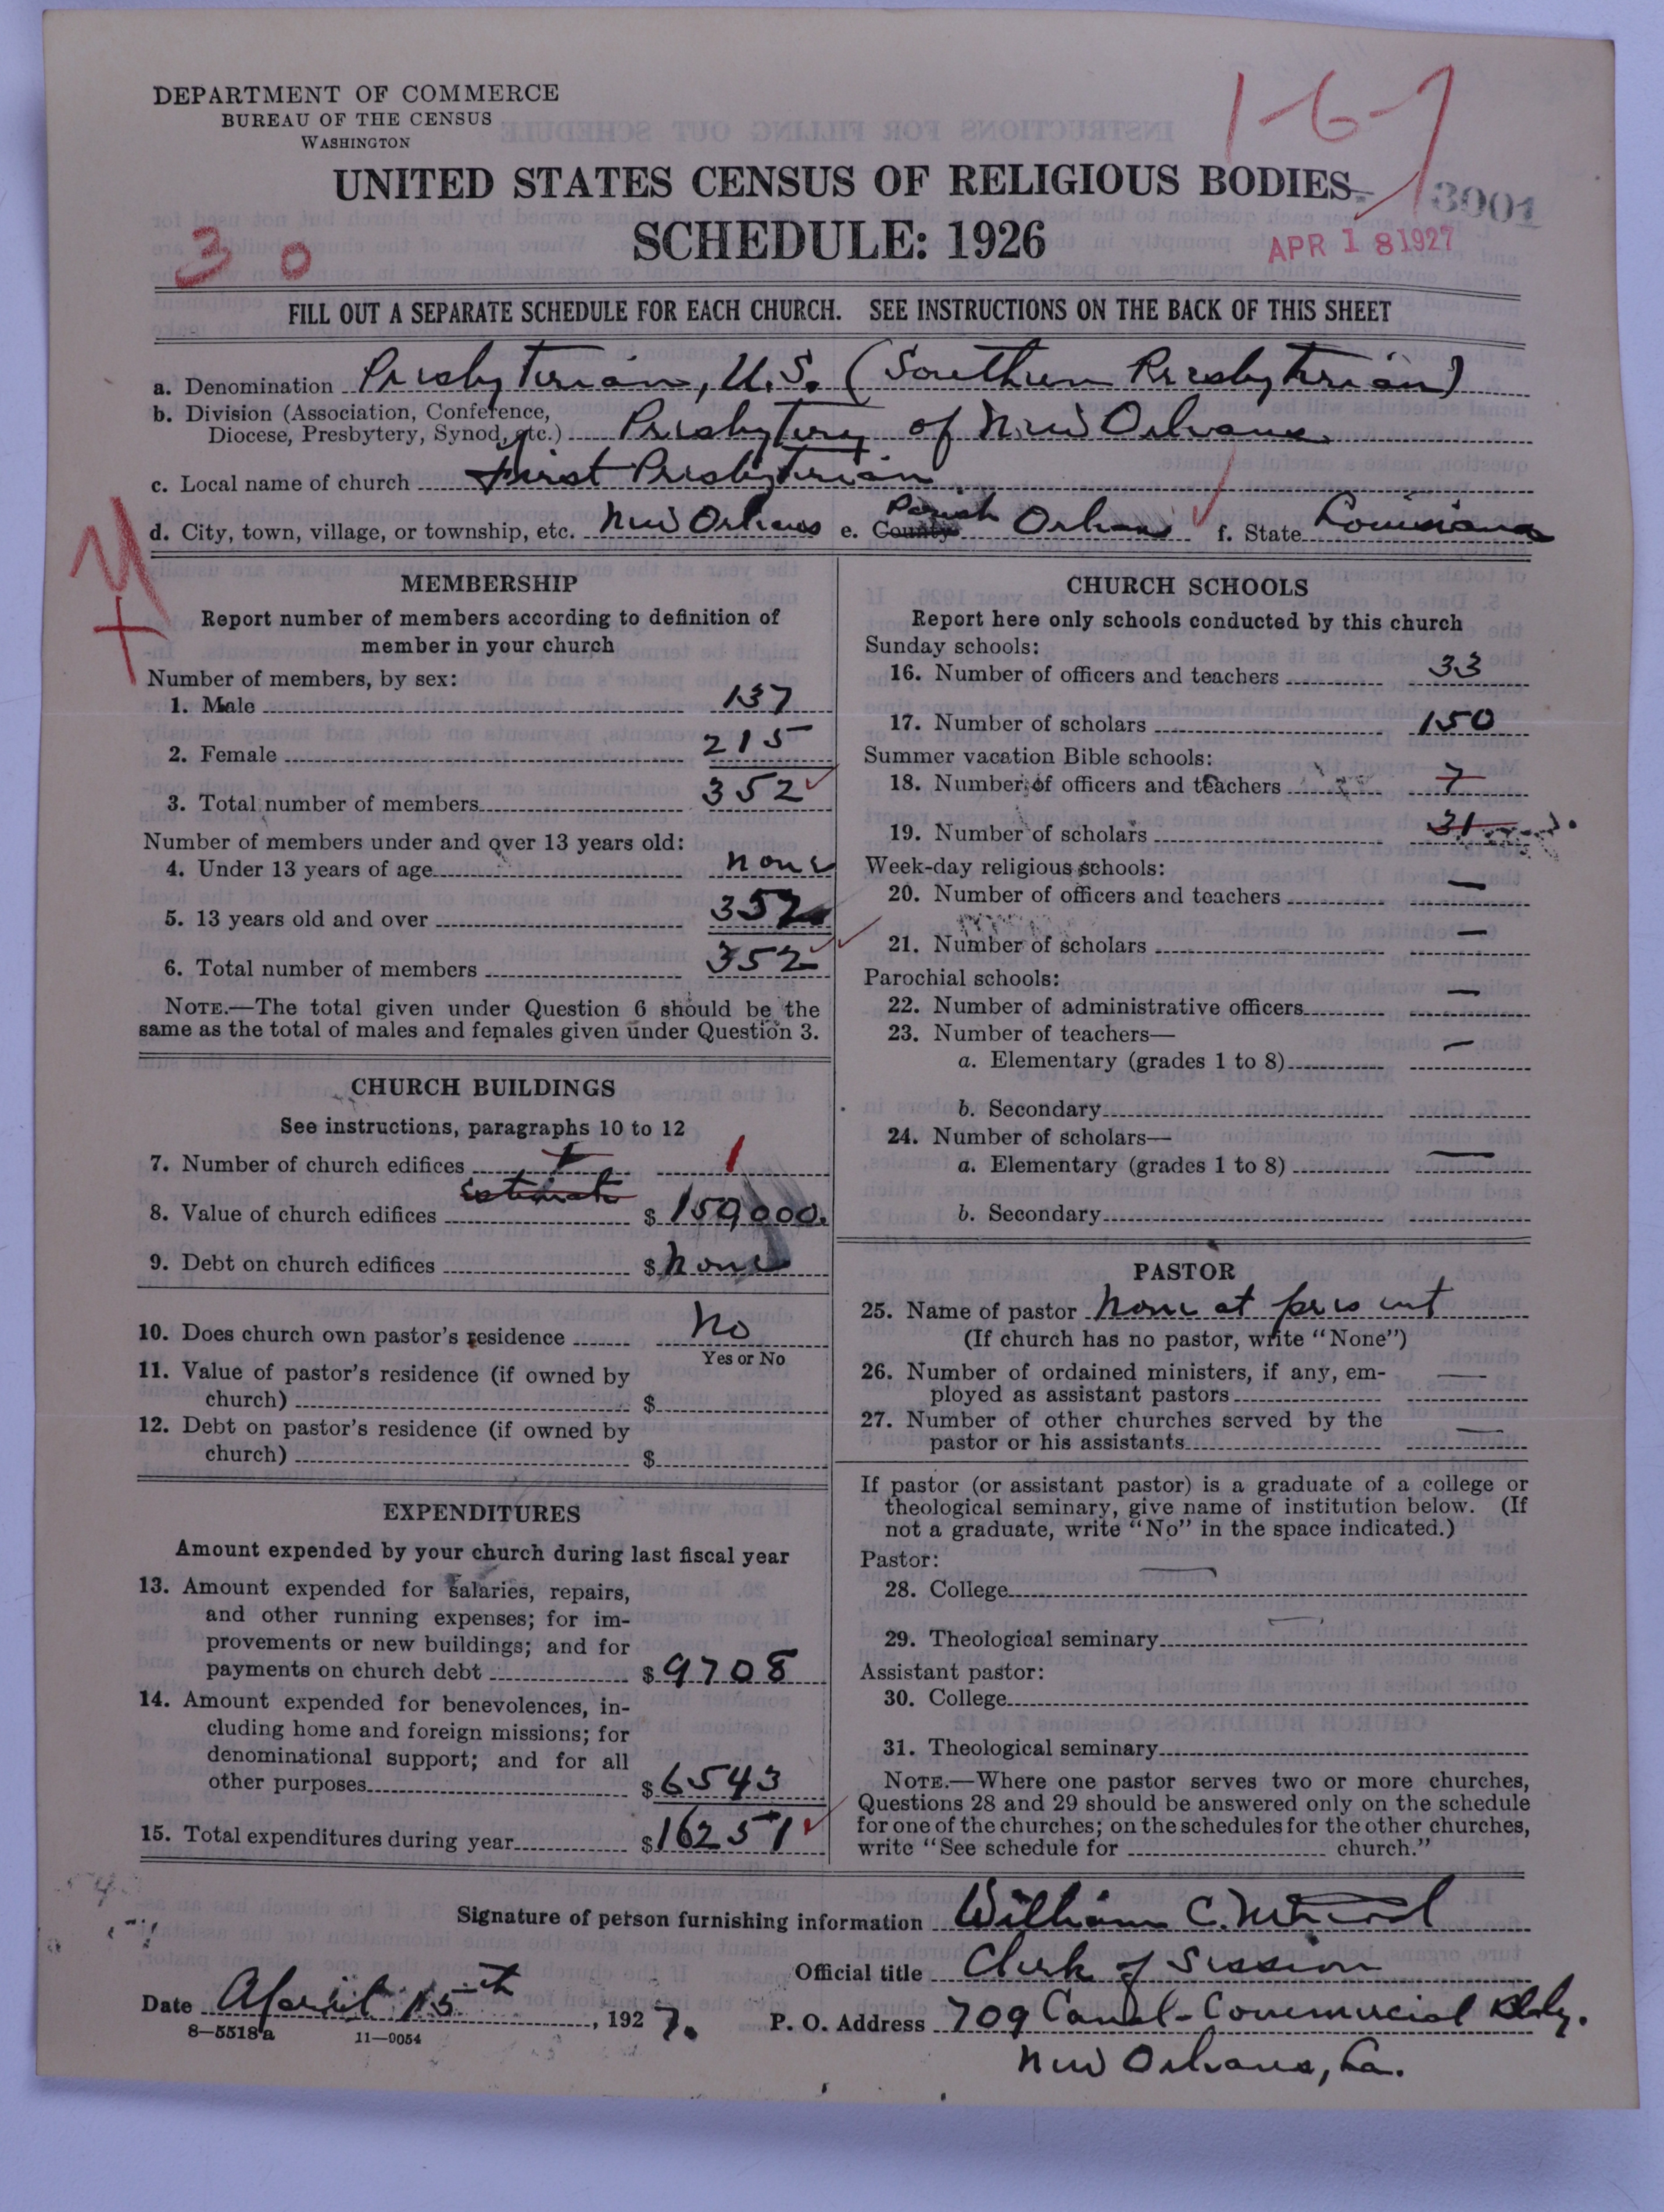 DEPARTMENT OF COMMERCE
BUREAU OF THE CENSUS
WASHINGTON
1-6-7
UNITED STATES CENSUS OF RELIGIOUS BODIES
3001
SCHEDULE: 1926
APR 18 1927
3 0
FILL OUT A SEPARATE SCHEDULE FOR EACH CHURCH. SEE INSTRUCTIONS ON THE BACK OF THIS SHEET
a. Denomination Presbyterian, U.S. (Southern Presbyterian)
b. Division (Association, Conference,
Diocese, Presbytery, Synod, etc.) Presbytery of New Orleans
c. Local name of church First Presbyterian
d. City, town, village, or township, etc. New Orleans e. County Parish Orleans f. State Louisiana
MEMBERSHIP
Report number of members according to definition of
member in your church
Number of members, by sex:
1. Male 137
2. Female 215
3. Total number of members 352
Number of members under and over 13 years old:
4. Under 13 years of age none
5. 13 years old and over 352
6. Total number of members 352
NOTE.—The total given under Question 6 should be the
same as the total of males and females given under Question 3.
CHURCH BUILDINGS
See instructions, paragraphs 10 to 12
7. Number of church edifices 1
estimate
8. Value of church edifices $ 150,000.
9. Debt on church edifices $ none
10. Does church own pastor's residence No
Yes or No
11. Value of pastor's residence (if owned by
church) $
12. Debt on pastor's residence (if owned by
church) $
EXPENDITURES
Amount expended by your church during last fiscal year
13. Amount expended for salaries, repairs,
and other running expenses; for im-
provements or new buildings; and for
payments on church debt $ 9708
14. Amount expended for benevolences, in-
cluding home and foreign missions; for
denominational support; and for all
other purposes $ 6543
15. Total expenditures during year $ 16251
CHURCH SCHOOLS
Report here only schools conducted by this church
Sunday schools:
16. Number of officers and teachers 33
17. Number of scholars 150
Summer vacation Bible schools:
18. Number of officers and teachers 7
19. Number of scholars 31
Week-day religious schools:
20. Number of officers and teachers —
21. Number of scholars —
Parochial schools:
22. Number of administrative officers —
23. Number of teachers—
a. Elementary (grades 1 to 8) —
b. Secondary
24. Number of scholars—
a. Elementary (grades 1 to 8) —
b. Secondary
PASTOR
25. Name of pastor None at present
(If church has no pastor, write "None")
26. Number of ordained ministers, if any, em-
ployed as assistant pastors —
27. Number of other churches served by the
pastor or his assistants —
If pastor (or assistant pastor) is a graduate of a college or
theological seminary, give name of institution below. (If
not a graduate, write "No" in the space indicated.)
Pastor:
28. College —
29. Theological seminary —
Assistant pastor:
30. College
31. Theological seminary
NOTE.—Where one pastor serves two or more churches,
Questions 28 and 29 should be answered only on the schedule
for one of the churches; on the schedules for the other churches,
write "See schedule for church."
Signature of person furnishing information William C.
Official title Clerk of Session
Date April 15th, 1927.
P. O. Address 709 Canal-Commercial Bldg.
8—5518a 11—9054
New Orleans, La.